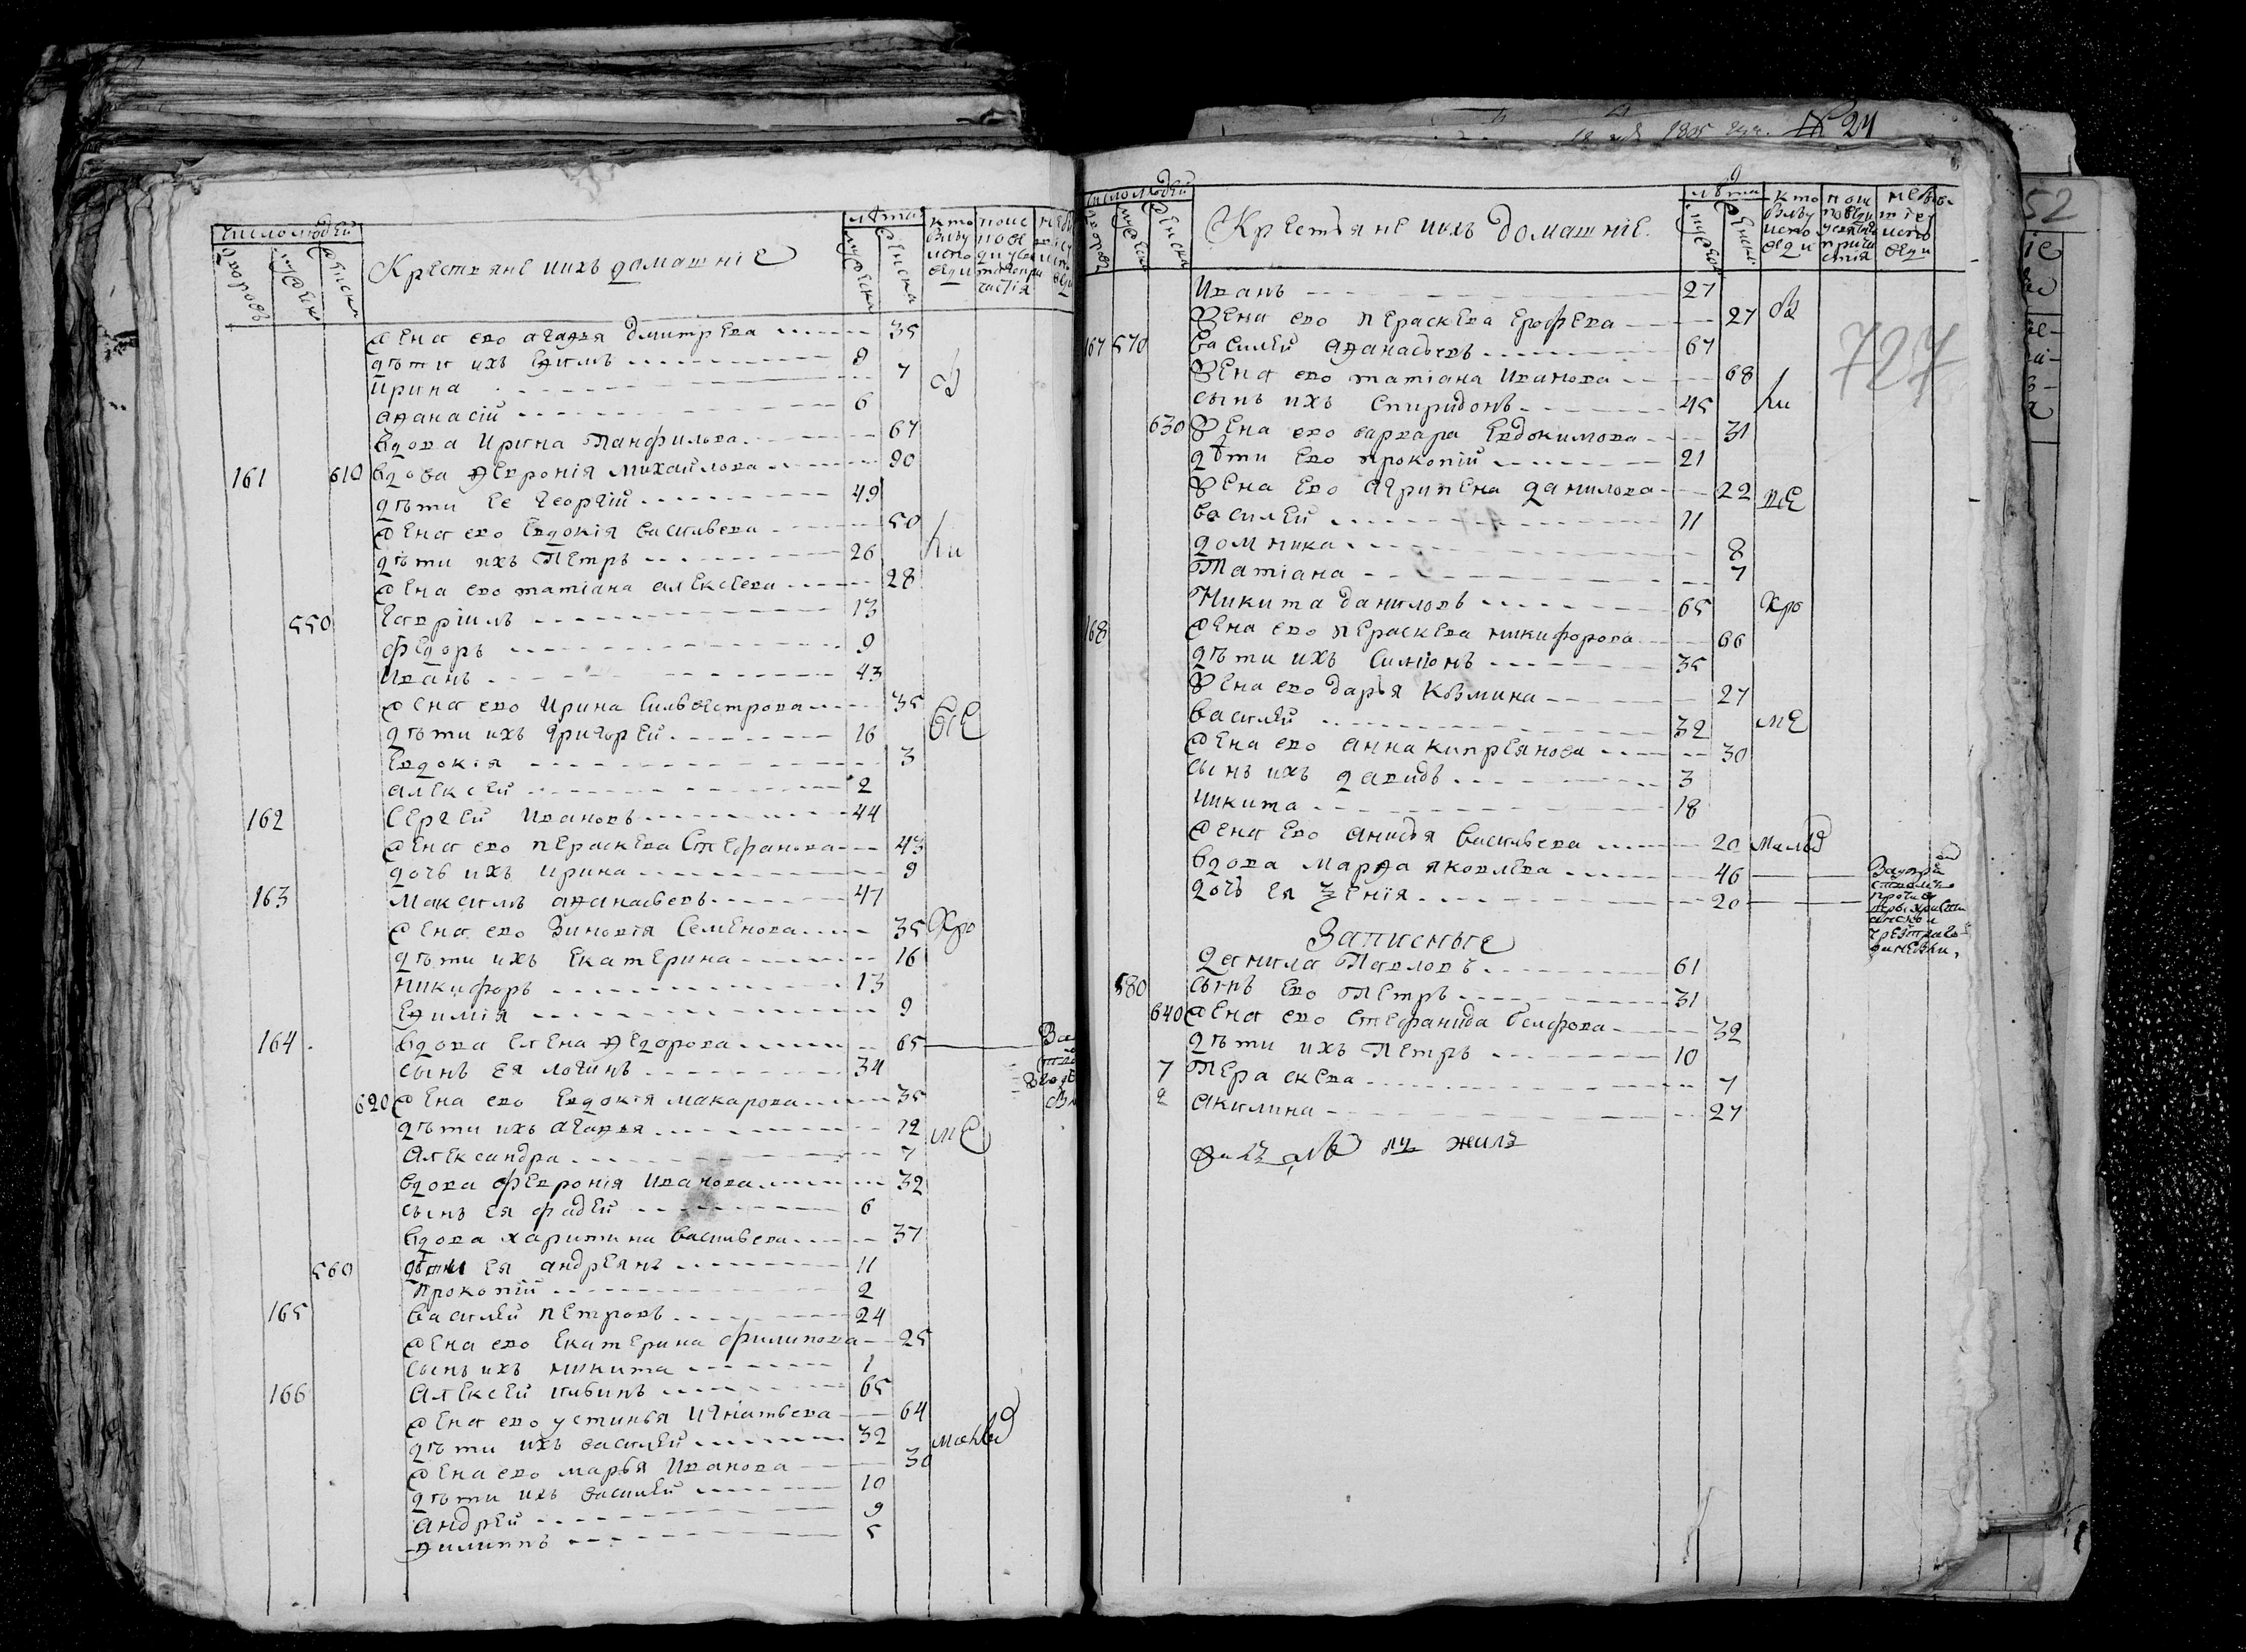 число людей
дворовъ
мужеск
женска
Крестьяне и ихъ домашнiе
лѣта
мужеска
женска
жена ево агафья дмитрева 35
дѣти ихъ Ефимъ 8
ирина 7
афанасiй 6
вдова Ирина Панфилова 67
161 610 вдова Февронiя михайлова 90
дѣти ее георгiй 49
жена ево Евдокiя васильева 50
дѣти ихъ Петръ 26
жена ево татiана алексеева 28
550 гаврiилъ 13
федоръ 9
Иванъ 43
жена ево Ирина Сильвестрова 35
дѣти ихъ григорей 16
Евдокiя 3
алексей 2
162 Сергей Ивановъ 44
жена ево Пераскева Стефанова 43
дочь ихъ ирина 9
163 максимъ афанасьевъ 47
жена ево Зиновiя Семенова 35
дѣти ихъ Екатерина 16
никифоръ 13
Ефимiя 9
164 вдова Елена Федорова 65
сынъ ея логинъ 34
620 жена ево Евдокiя макарова 35
дѣти ихъ агафья 12
александра 7
вдова февронiя Иванова 32
сынъ ея фадей 6
вдова харитина васильева 37
560 дѣти ея андреянъ 11
прокопiй 2
165 василей петровъ 24
жена ево Екатерина филипова 25
сынъ ихъ никита 1
166 алексей 65
жена ево устинья игнатьева 64
дѣти ихъ василей 32
жена ево марья Иванова 30
дѣти ихъ василей 10
андрей 9
филиппъ 5
24
727
52
число людей
дворовъ
мужеск
женска
Крестьяне и ихъ домашнiе
лѣта
Иванъ 27
жена ево пераскева Ерофеева 27
167 570 василей афанасьевъ 67
жена ево татiана Иванова 68
сынъ ихъ спиридонъ 45
630 жена ево варвара Евдокимова 31
дѣти ево прокопiй 21
жена ево агрипена данилова 22
василей 11
домника 8
Татiана 7
168 Никита даниловъ 65
жена ево пераскева никифорова 66
дѣти ихъ симионъ 35
жена ево дарья козмина 27
василей 32
жена ево анна кипреянова 30
сынъ ихъ давидъ 3
никита 18
жена ево анисья васильева 20
вдова марфа яковлева 46
дочь ея 20
Записные
данила Павловъ 61
580 сынъ ево Петръ 31
640 жена ево стефанида 32
дѣти ихъ Петръ 10
Пераскева 7
2 акилина 27